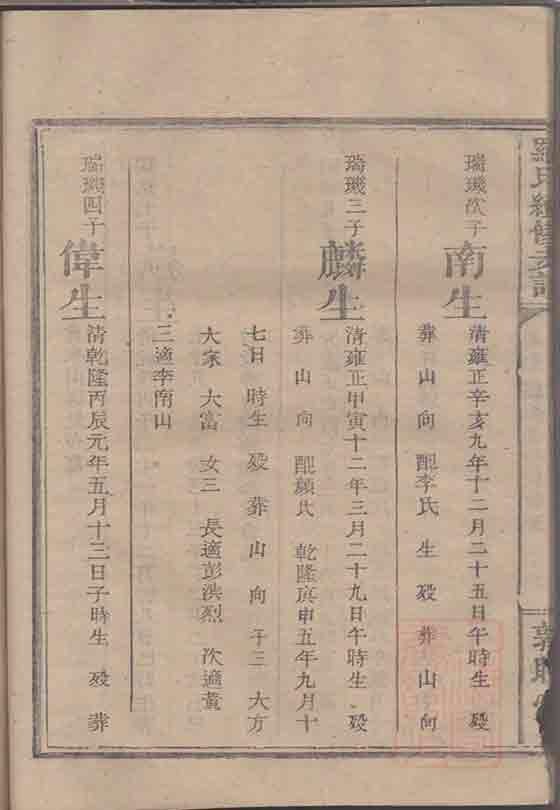 羅氏續修支譜
瑞璣次子
南生
清雍正辛亥九年十二月二十五日午時生 殁
葬 山 向 配李氏 生 殁 葬 山 向
瑞璣三子
麟生
清雍正甲寅十二年三月二十九日午時生 殁
葬 山 向 配顏氏 乾隆庚申五年九月十
七日 時生 殁 葬 山 向 子三 大方
大家 大富 女三 長適彭洪烈 次適黃
三適李南山
瑞璣四子
偉生
清乾隆丙辰元年五月十三日子時生 殁 葬